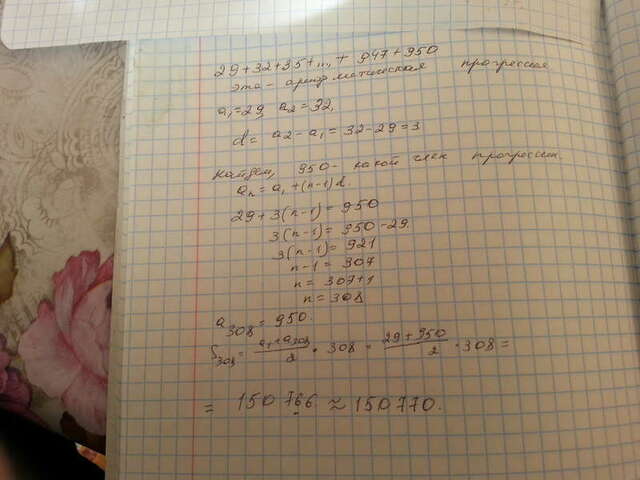 29+32+35+...+ 947+950
это - арифметическая прогрессия
a₁=29, a₂=32,
d= a₂-a₁ = 32-29=3
Найдем, 950- какой член прогрессии.
aₙ=a₁+(n-1)d.
29+3(n-1)=950
3(n-1)= 950-29.
3(n-1)= 921
n-1= 307
n= 307+1
n= 308
a₃₀₈= 950.
S₃₀₈= (a₁+a₃₀₈)/2 · 308 = (29+950)/2 · 308 =
= 150 766 ≈ 150770.